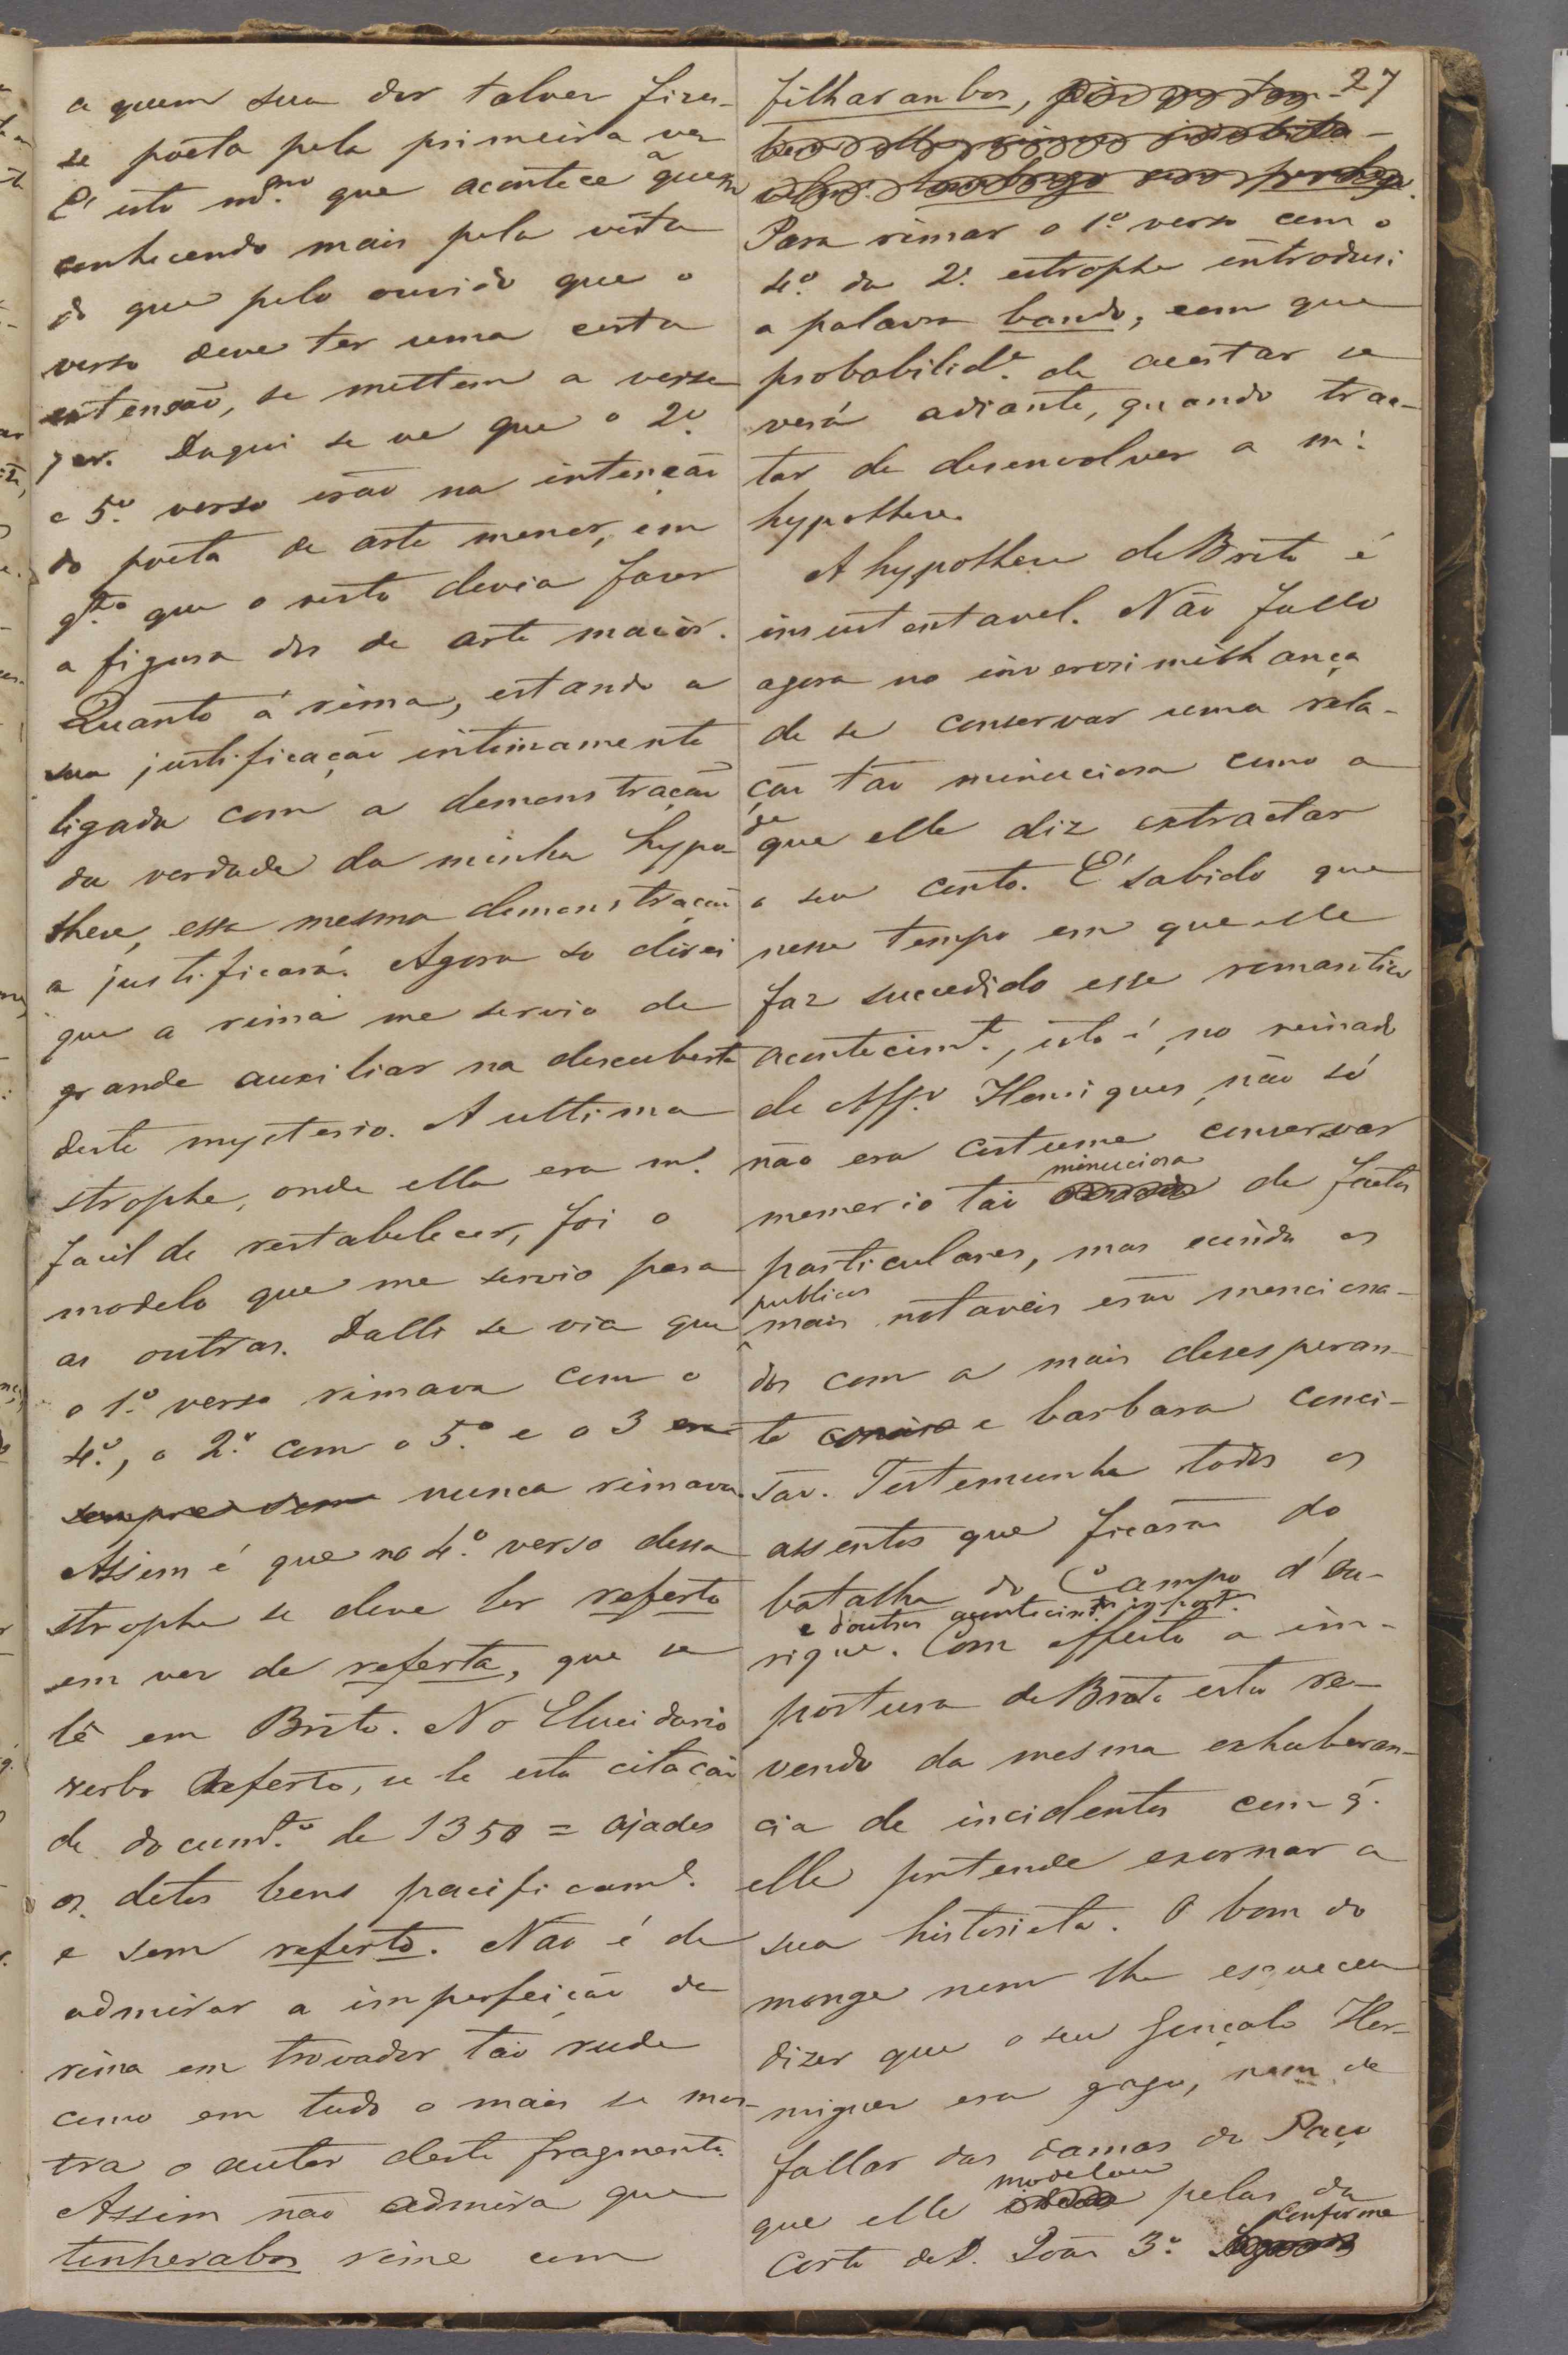 a quem sua dor talvez fizes-
se poeta pela primeira vez
É isto m.mo que acontece a quem
conhecendo mais pela vista
do que pelo ouvido que o
verso deve ter uma certa
extensão, se mettem a verse
jar. Daqui se ve que o 2.º
e 5.º verso erão na intenção
do poeta de arte menor, em
q.to que o resto devia fazer
a figura dos de arte maior.
Quanto á rima, estando a
sua justificação intimamente
ligada com a demonstração
da verdade da minha hypo-
these, essa mesma demonstração
a justificará. Agora so direi
que a rima me servio de
grande auxiliar na descuberta
deste mysterio. A ultima
strophe, onde ella era m.
facil de restabelecer, foi o
modelo que me servio para
as outras. Dalli se via que
o 1.º verso rimava com o
4.º, o 2.º com o 5.º e o 3
nunca rimava.
Assim é que no 4.º verso dessa
strophe se deve ler referto
em vez de referta, que se
lê em Brito. No Elucidario
verbo Referto, se le esta citação
de docum.to de 1350 = ajades
os detos bens pacificam.e
e sem referto. Não é de
admirar a imperfeição da
rima em trovador tão rude
como em tudo o mais se mos-
tra o autor deste fragmento.
Assim não admira que
tenherabos rime com
27
filharanbos,
Para rimar o 1.º verso com o
4.º da 2.ª estrophe introdusi
a palavra bando, com que
probabilid.e de acertar se
verá adiante, quando trac-
tar de desenvolver a m.ª
hypothese.
A hypothese de Brito é
insustentavel. Não fallo
agora no inverosimilhança
de se conservar uma rela-
ção tão minuciosa como a
de
que elle diz extractar
o seu conto. É sabido que
nesse tempo em que elle
faz succedido esse romantico
acontecim.to, isto é, no reinado
de Aff.º Henriques, não só
não era costume conservar
minuciosa
memoria tão de factos
particulares, mas ainda os
publicos
mais notaveis erão menciona-
dos com a mais desesperan-
te e barbara conci-
são. Testemunha todos os
assentos que ficarão da
batalha do Campo d'Ou-
e doutros acontecim.tos import.
rique. Com effeito a im-
postura de Brito esta re-
vendo da mesma exhuberan-
cia de incidentes com q.
elle pertende exornar a
sua historieta. O bom do
monge nem lhe esqueceu
dizer que o seu Gonçalo Her-
migues era gago, nem de
fallar das damas do Paço
modelou
que elle pelas da
conforme
Corte de D. João 3.º